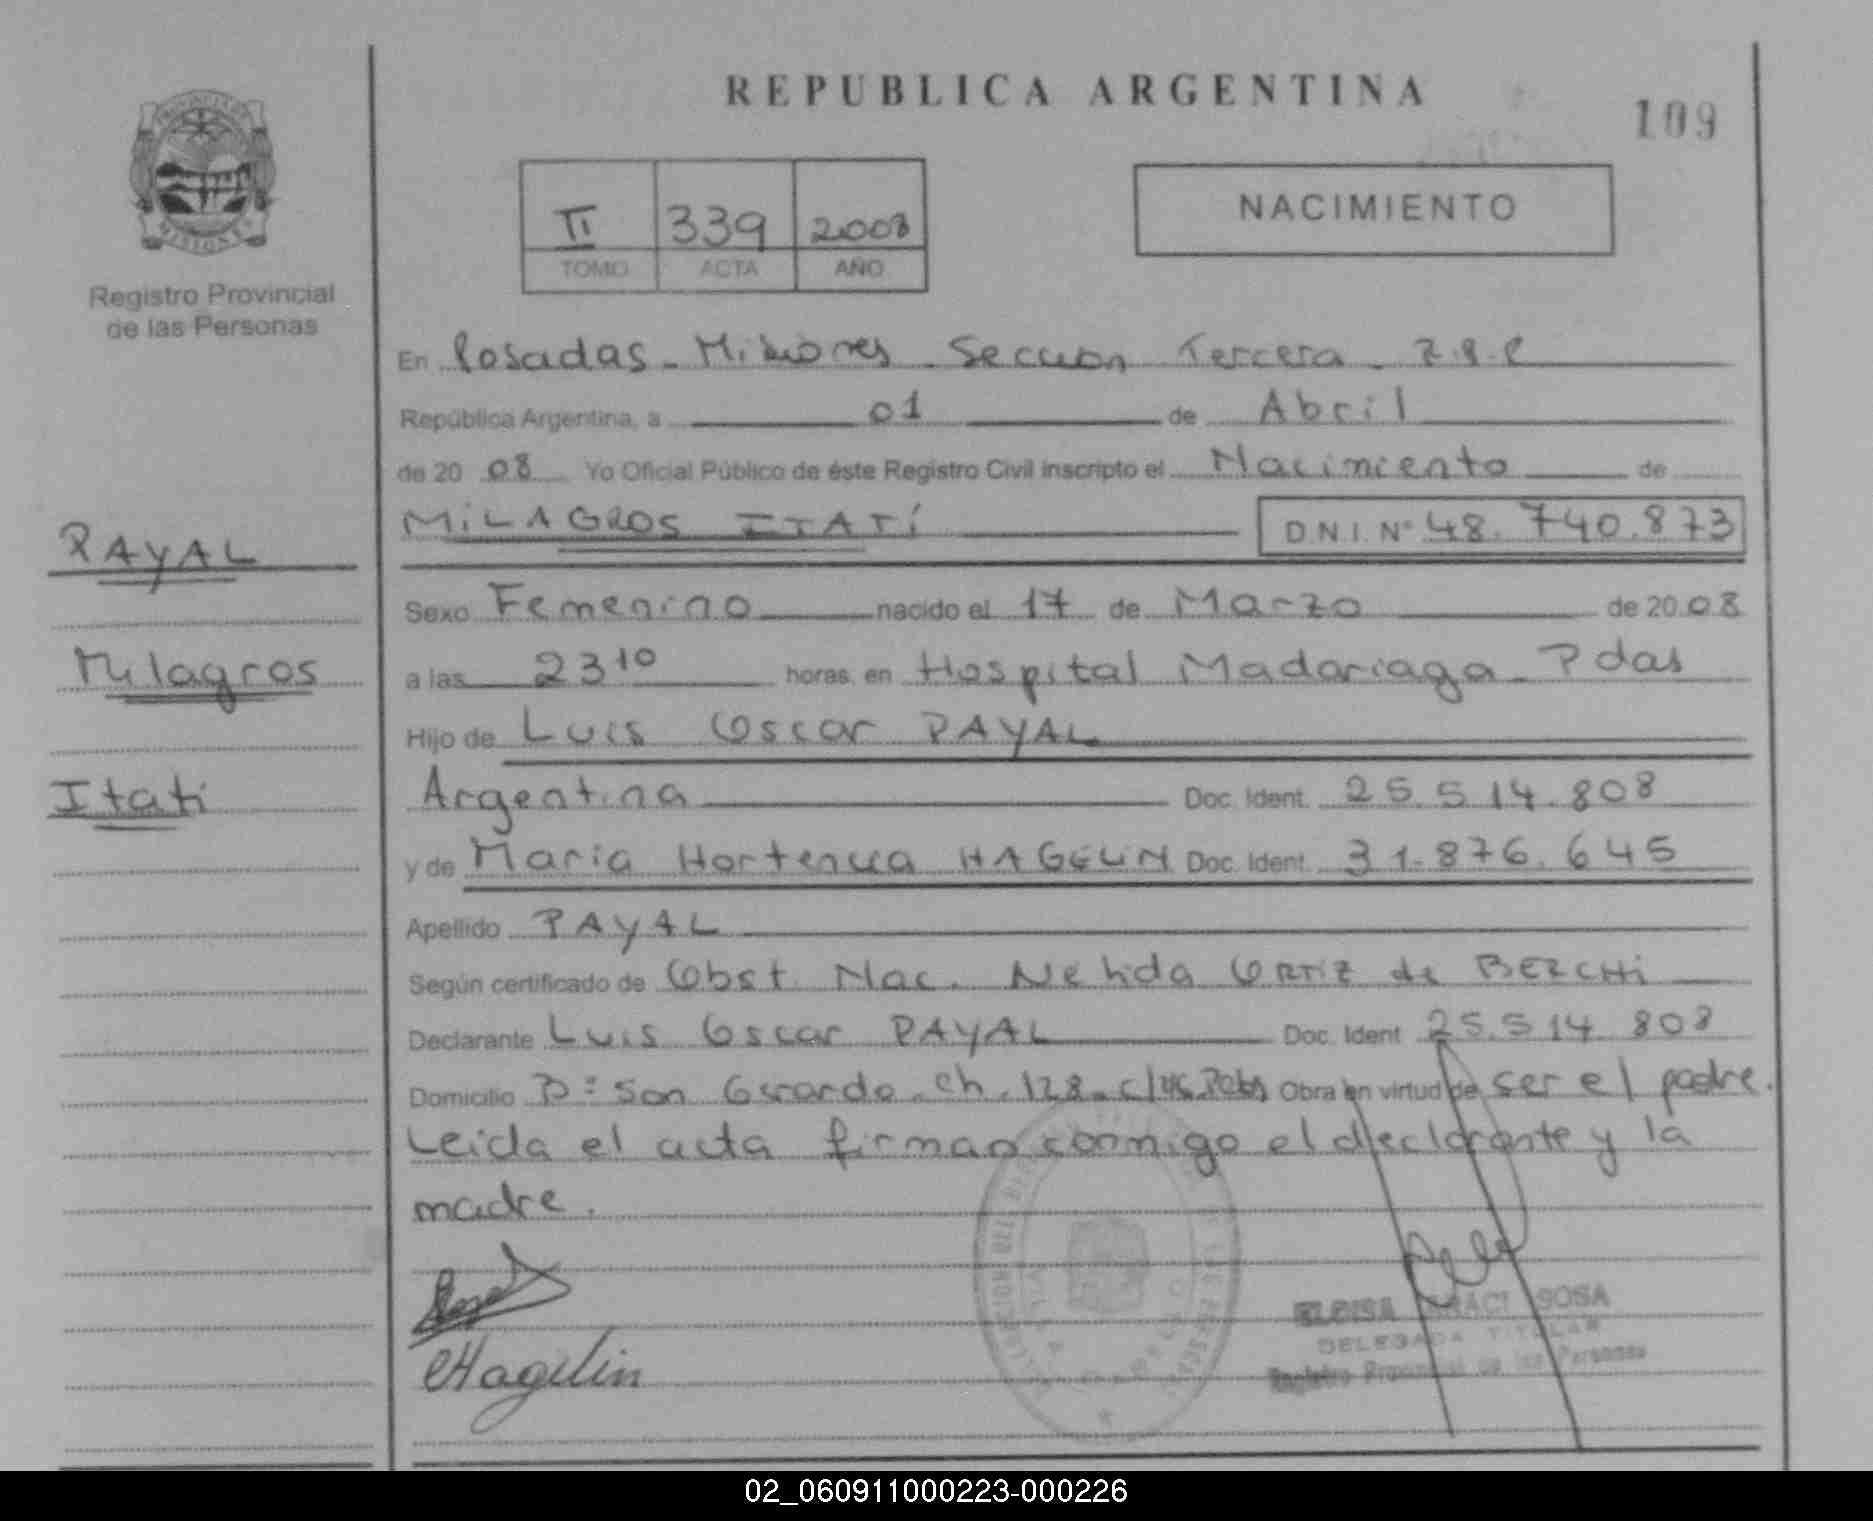 REPUBLICA ARGENTINA
109
II 339 2008
TOMO ACTA AÑO
NACIMIENTO
Registro Provincial
de las Personas
PAYAL
Milagros
Itatí
En Posadas - Misiones - Seccion Tercera -
República Argentina, a 01 de Abril
de 20 08 Yo Oficial Público de éste Registro Civil inscripto el Nacimiento de
MILAGROS ITATÍ D.N.I. Nº 48.740.873
Sexo Femenino nacido el 17 de Marzo de 20 08
a las 23 10 horas en Hospital Madariaga - Pdas
Hijo de Luis Oscar PAYAL
Argentina Doc. Ident. 25.514.808
y de Maria Hortencia HAGELIN Doc. Ident. 31.876.645
Apellido PAYAL
Según certificado de Obst. Nac. Nelida ORTIZ de BERCHI
Declarante Luis Oscar PAYAL Doc. Ident 25.514.808
Domicilio Bº San Gerardo - ch. 128 - Obra en virtud de ser el padre.
Leida el acta firman conmigo el declarante y la
madre.
Hagelin
SOSA
DELEGADA TITULAR
Registro Provincial de las Personas
02_060911000223-000226